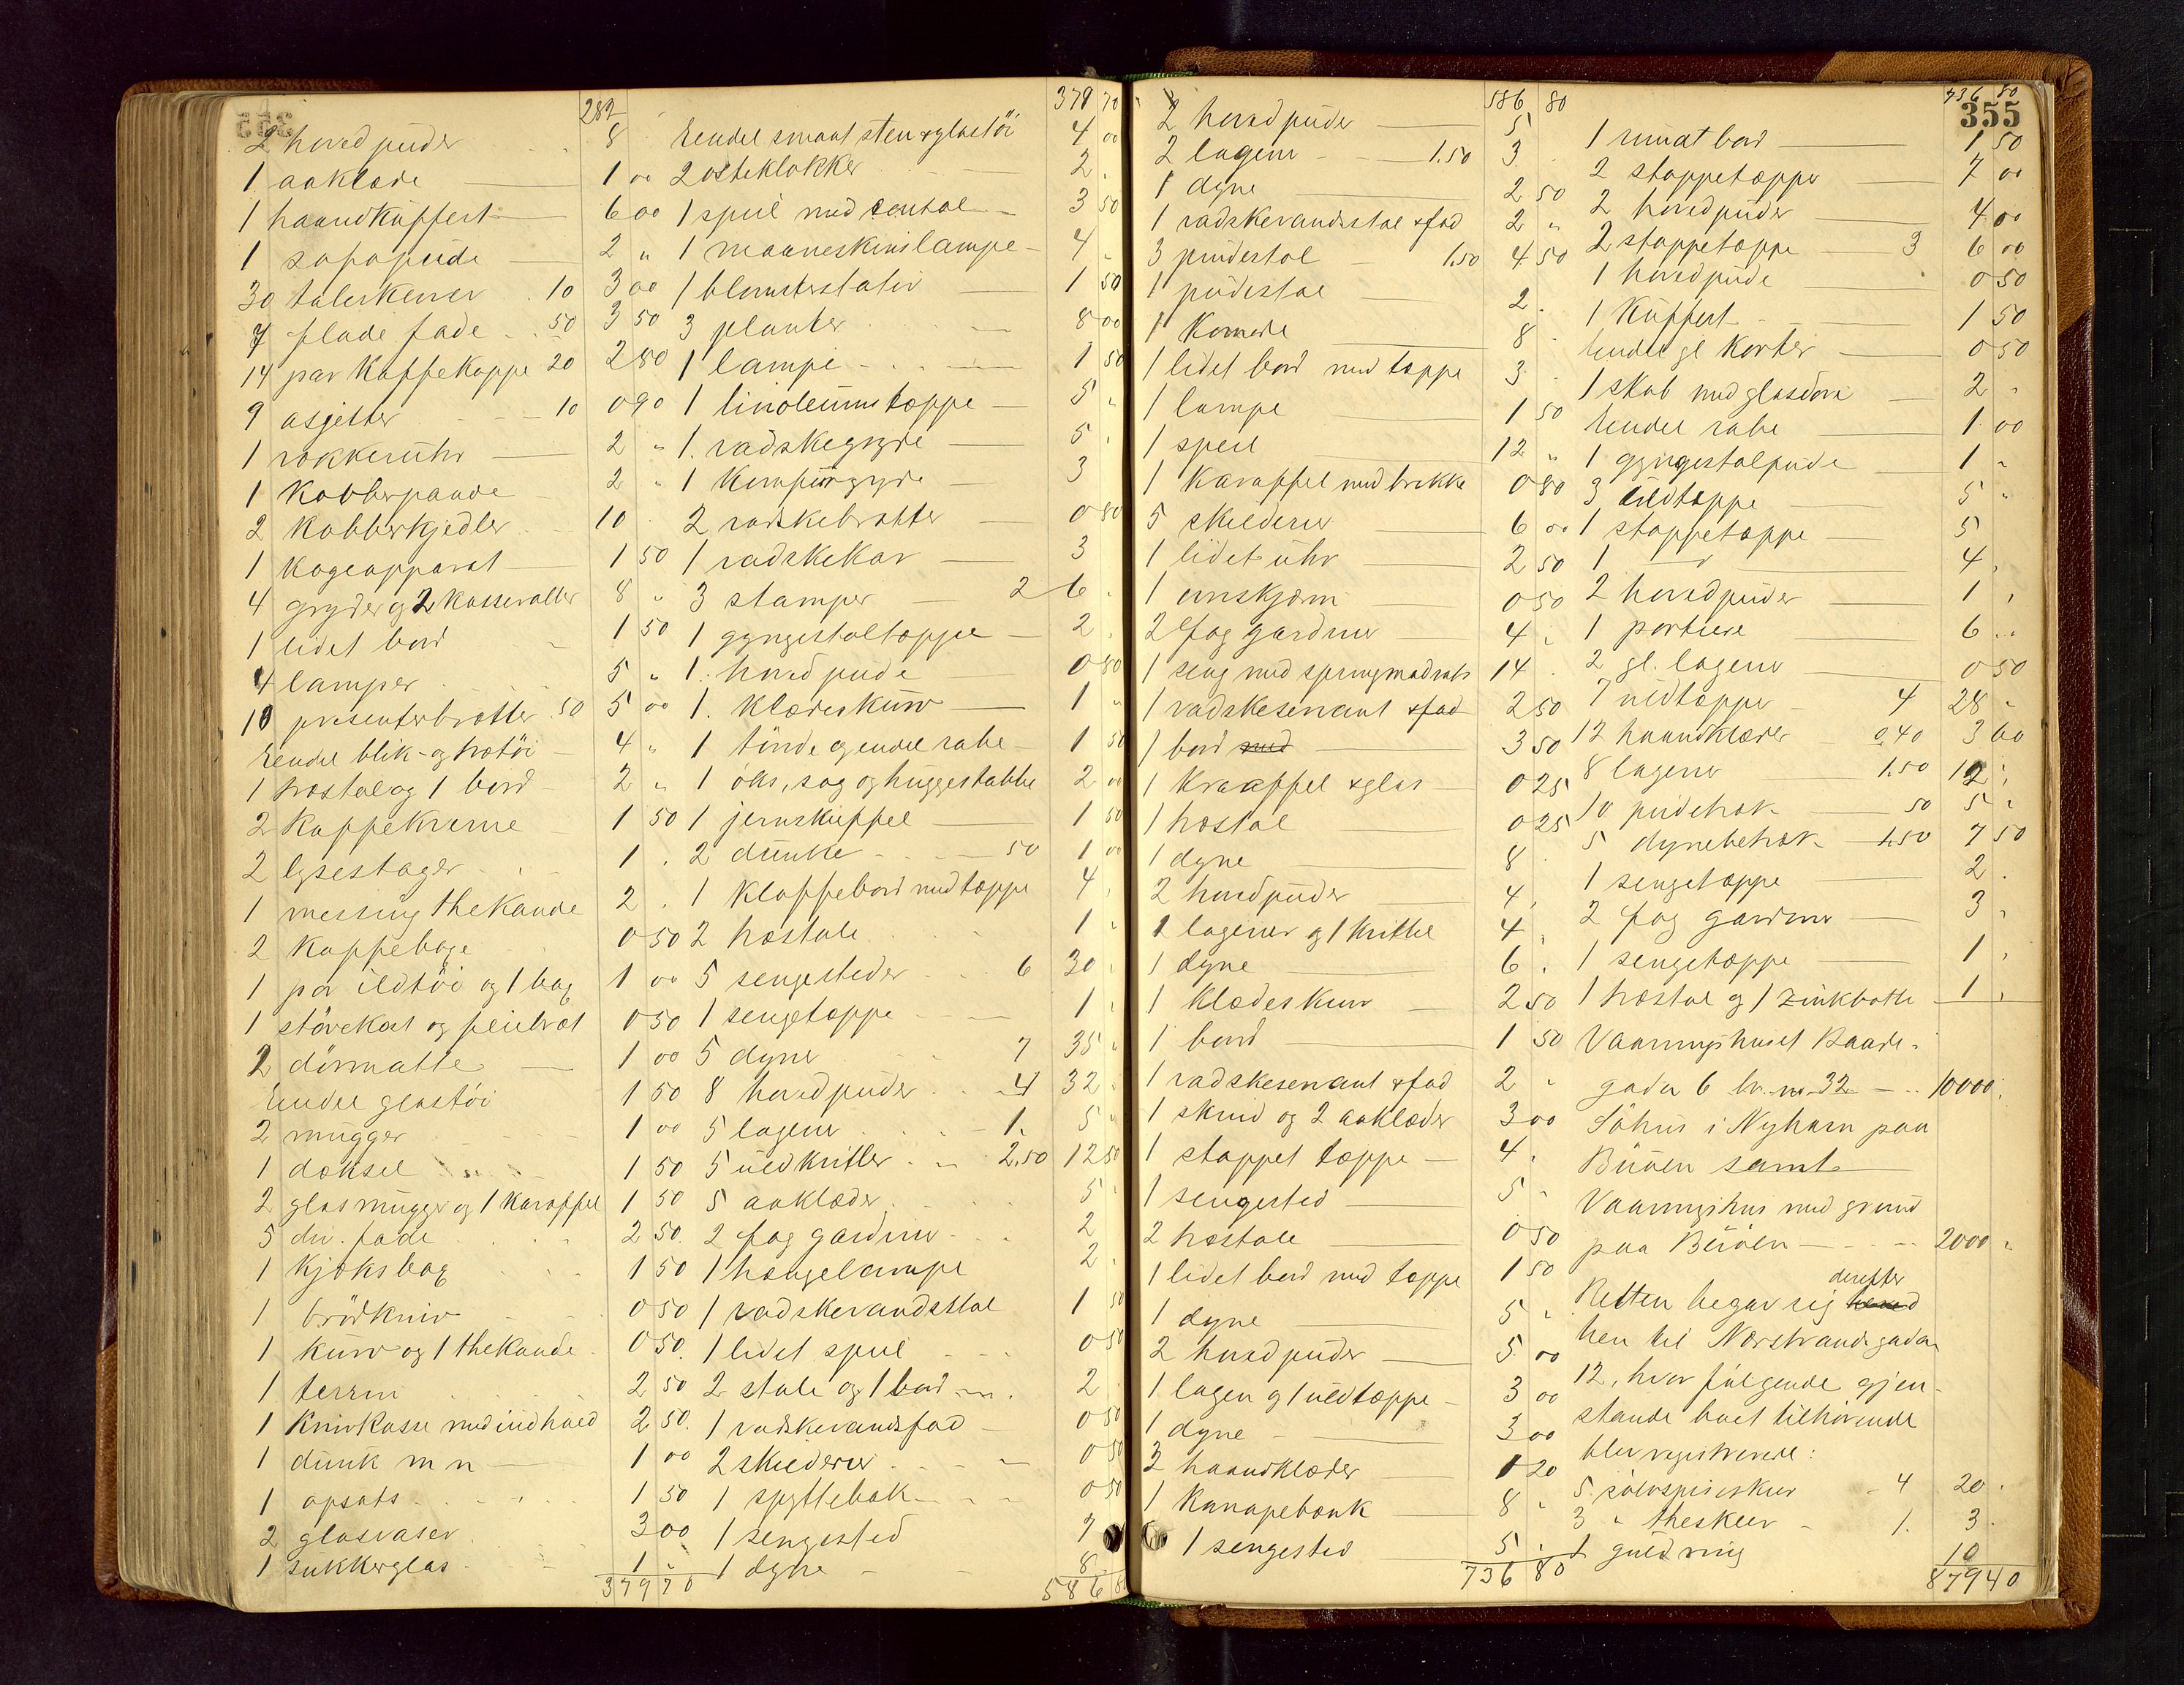 282
2 hovedpuder 8
1 aaklæde 1 00
1 haandkuffert 6 00
1 sofapude 2 "
30 talerkener 10 3 00
7 flade fade 50 3 50
14 par kaffekoppe 20 2 80
9 asjetter 10 0 90
1 vækkeruhr 2 "
1 kobberpande 2 "
2 kobberkjedler 10
1 kogeapparat 1 50
4 gryder og 2 kasseroller 8 "
1 lidet bord 1 50
4 lamper 5 "
10 presenterbrætter 50 5 00
Endel blik- og trætöi 4 "
1 træstol og 1 bord 2 "
2 kappekurve 1 50
2 lysestager 1
1 messing thekande 2
2 kappebøge 0 50
1 par ildtöi og 1 bag 1 00
1 stövekost og feiebræt 0 50
2 dörmatte 1 00
Endel glastöi 1 50
2 mugger 1 00
1 dæksel 1 50
2 glasmugger og 1 karaffel 1 50
5 div. fade 2 50
1 kjøksbag 1 50
1 brödkniv 0 50
1 kurv og 1 thekande 0 50
1 terrin 2 50
1 knivkasse med indhold 2 50
1 dunk m n 1 00
1 opsats 1 50
2 glasvaser 3 00
1 sukkerglas 1 "
379 70
379 70
Endel smaat sten & glastöi 4 00
2 osteklokker 2
1 speil med consol 3 50
1 maaneskinslampe 4
1 blomsterstativ 1 50
3 planter 8 00
1 lampe 1 50
1 linoleumstæppe 5
1 vadskegryde 5
1 komfurgryde 3
2 vadskebrætter 0 80
1 vadskekar 3
3 stamper 2 6
1 gyngestoltæppe 2
1 hovedpude 0 80
1 klædeskurv 1 "
1 tönde og endel rabe 1 50
1 öks, sag og huggestabbe 2 00
1 jernskuffel 1 50
2 dunke 50 1 00
1 klappebord med tæppe 4
2 træstole 1
5 sengesteder 6 30
1 sengetæppe 1
5 dyner 7 35
8 hovedpuder 4 32
5 lagener 1. 5
5 uldkvitler 2,50 12 50
5 aaklæder 5
2 fag gardiner 2
1 hængelampe 2
1 vadskevandsstol 1 50
1 lidet speil 0 50
2 stole og 1 bord 2
1 vadskevandsfad 0 50
2 skilderier 0 50
1 spyttebak 0 50
1 sengested 7
1 dyne 8
586 80
586 80
2 hovedpuder 5
2 lagener 1.50 3
1 dyne 2 50
1 vadskevandsstol & fad 2 "
3 pindestol 1.50 4 50
1 pudestol 2
1 komode 8
1 lidet bord med tæppe 3
1 lampe 1 50
1 speil 12 "
1 karaffel med brikke 0 80
5 skilderier 6 00
1 lidet uhr 2 50
1 ovnskjærm 0 50
2 fag gardiner 4
1 seng med springmadrats 14
1 vadskeservant & fad 2 50
1 bord med 3 50
1 karaffel & glas 0 25
1 træstol 0 25
1 dyne 8
2 hovedpuder 4
2 lagener og 1 kvittel 4
1 dyne 6
1 klædeskurv 2 50
1 bord 1 50
1 vadskeservant & fad 2 "
1 skind og 2 aaklæder 3 00
1 stoppet tæppe 4
1 sengested 5
2 træstole 0 50
1 lidet bord med tæppe 1 50
1 dyne 5
2 hovedpuder 5 00
1 lagen og 1 uldtæppe 3 00
1 dyne 3 00
3 haandklæder 1 20
1 Kanapebænk 8
1 sengested 5
736 80
736 80
355
1 rundt bord 1 50
2 stoppetæpper 7 00
2 hovedpuder 4 00
2 stoppetæppe 3 6 00
1 hovedpude 0 50
1 kuffert 1 50
Endel gl karter 0 50
1 skab med glasdöre 2
Endel rabe 1 00
1 gyngestolpude 1
3 uldtæppe 5
1 stoppetæppe 5
1 — 4
2 hovedpuder 1
1 portiere 6
2 gl. lagener 0 50
7 uldtæpper 4 28
12 haandklæder 0,40 3 60
8 lagener 1.50 12
10 pudetræk 50 5
5 dynebetræk 1.50 7 50
1 sengetæppe 2
2 fag gardiner 3
1 sengetæppe 1
1 træstol og 1 zinkbøtte 1
Vaaningshuset Baade-
gaden 6 br. nr. 32 10000
Söhus i Nyhavn paa
Buöen samt
Vaaningshus med grund
paa Buöen 2000
Retten begav sig derefter
hen til Nørstrandsgaden
12, hvor fulgende gjen-
stande boet tilhörende
blev registrerede:
5 sölvspiseskeer 4 20
3 " theskeer 1. 3
1 guldring 10
879 40